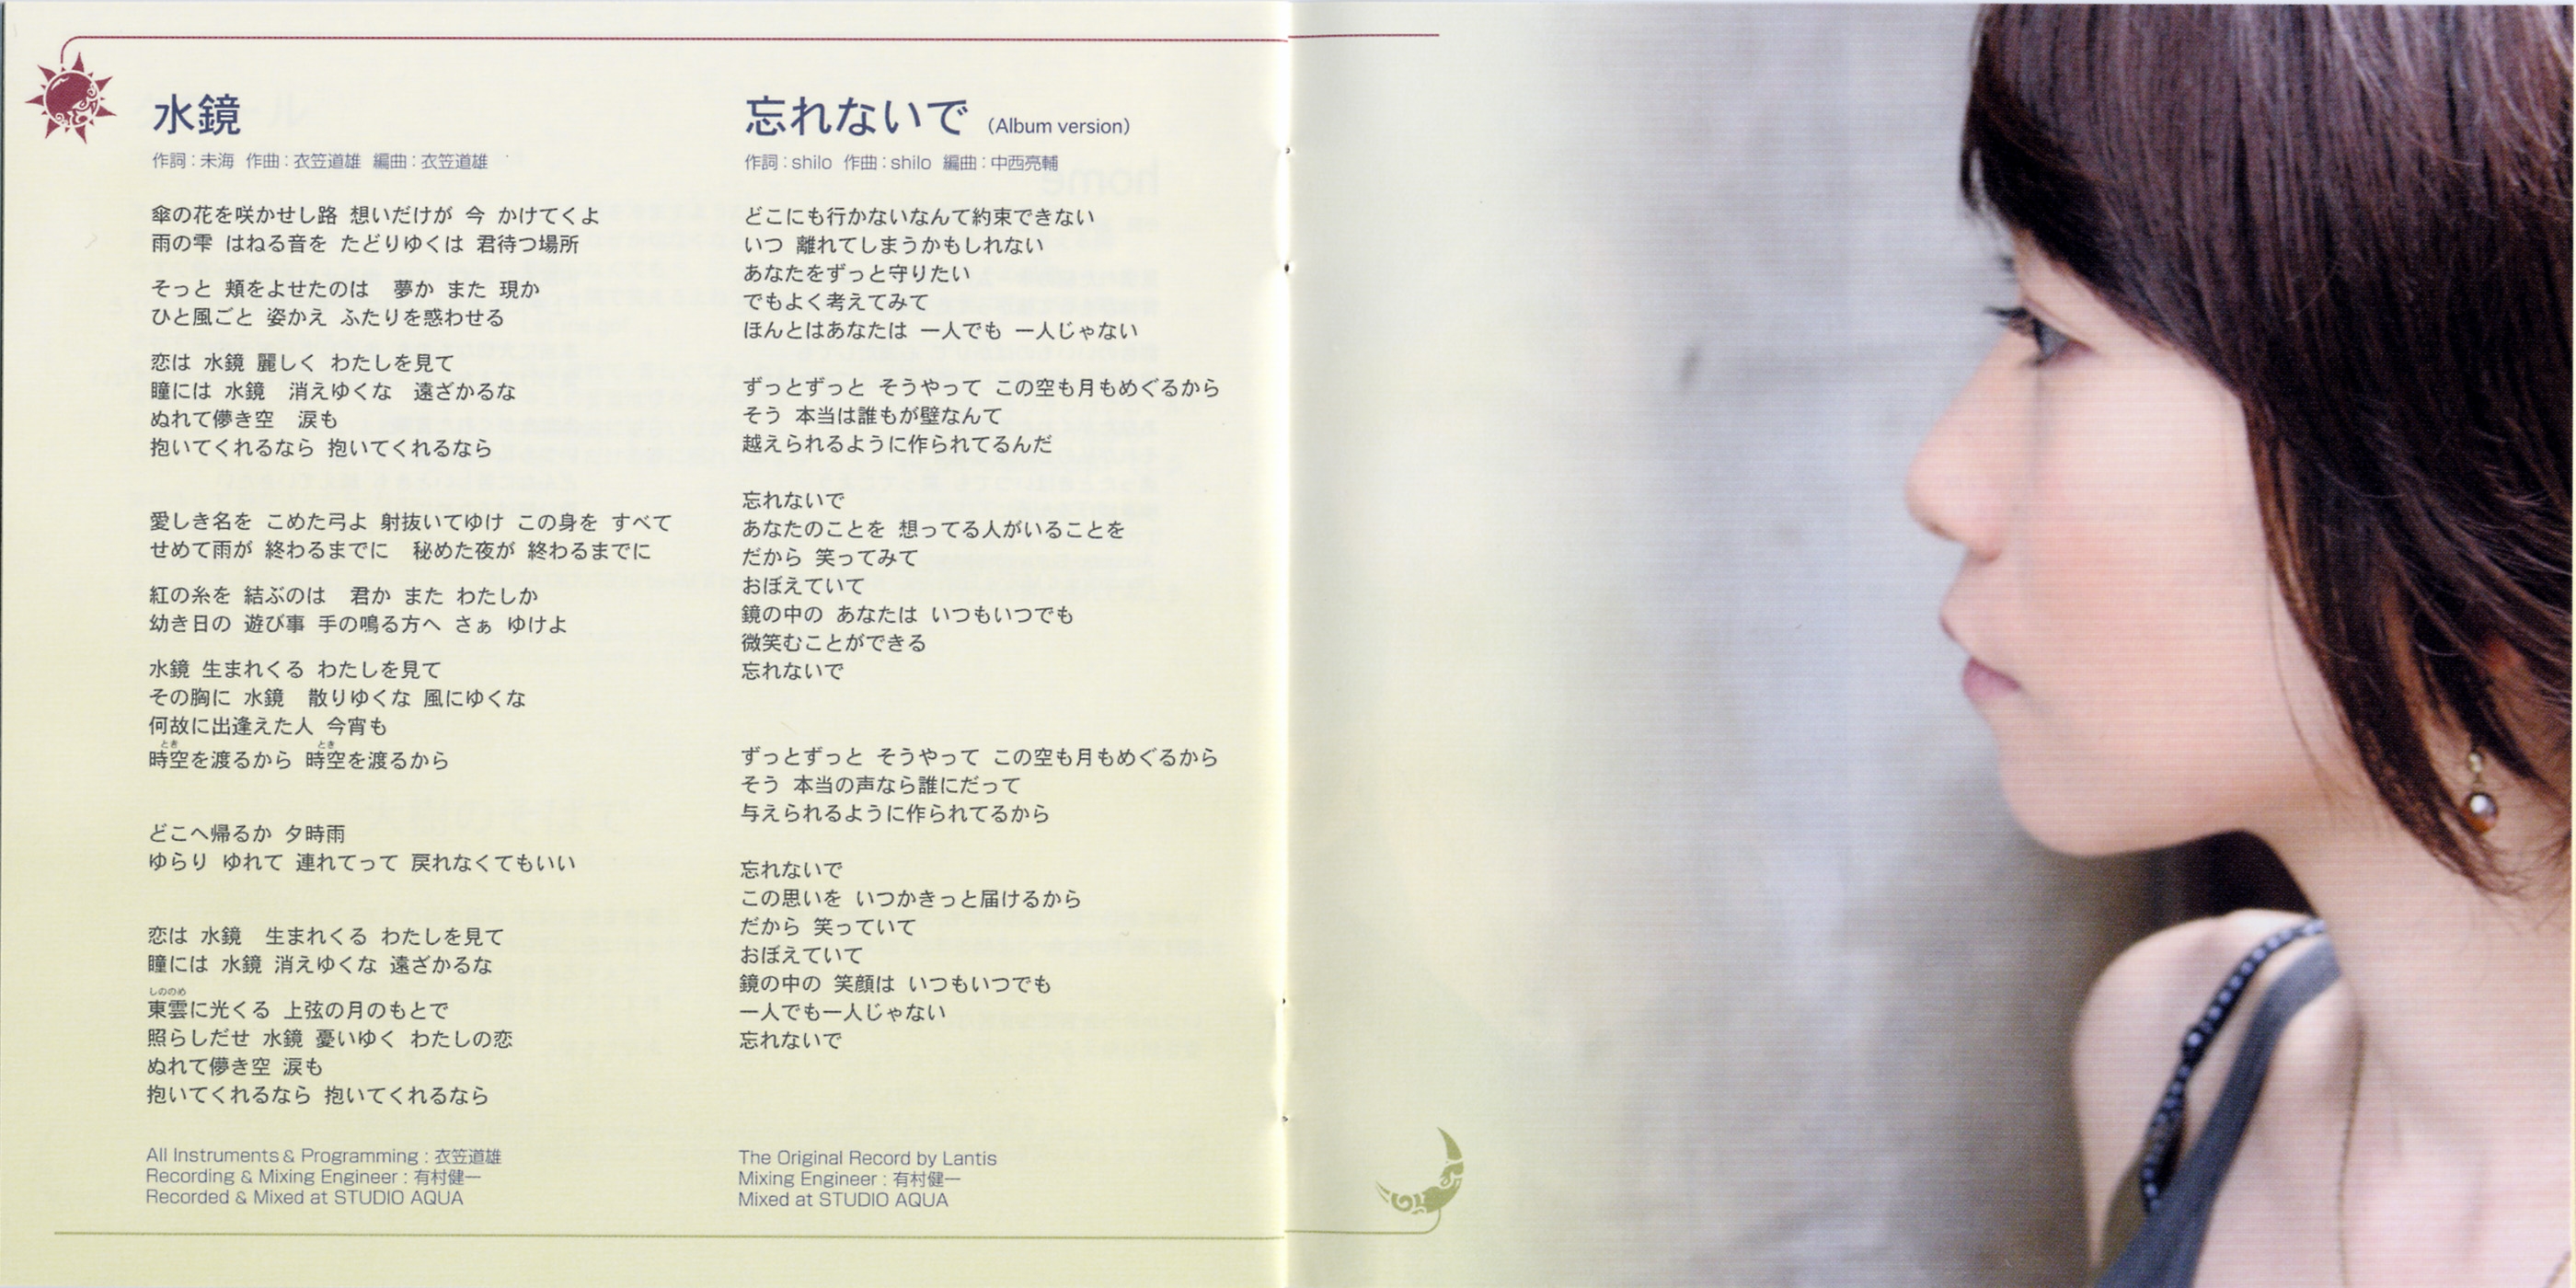 水鏡
作詞：未海 作曲：衣笠道雄 編曲：衣笠道雄
傘の花を咲かせし路 想いだけが 今 かけてくよ
雨の雫 はねる音を たどりゆくは 君待つ場所
そっと 頬をよせたのは 夢か また 現か
ひと風ごと 姿かえ ふたりを惑わせる
恋は 水鏡 麗しく わたしを見て
瞳には 水鏡 消えゆくな 遠ざかるな
ぬれて儚き空 涙も
抱いてくれるなら 抱いてくれるなら
愛しき名を こめた弓よ 射抜いてゆけ この身を すべて
せめて雨が 終わるまでに 秘めた夜が 終わるまでに
紅の糸を 結ぶのは 君か また わたしか
幼き日の 遊び事 手の鳴る方へ さぁ ゆけよ
水鏡 生まれくる わたしを見て
その胸に 水鏡 散りゆくな 風にゆくな
何故に出逢えた人 今宵も
とき とき
時空を渡るから 時空を渡るから
どこへ帰るか 夕時雨
ゆらり ゆれて 連れてって 戻れなくてもいい
恋は 水鏡 生まれくる わたしを見て
瞳には 水鏡 消えゆくな 遠ざかるな
しののめ
東雲に光くる 上弦の月のもとで
照らしだせ 水鏡 憂いゆく わたしの恋
ぬれて儚き空 涙も
抱いてくれるなら 抱いてくれるなら
All Instruments & Programming : 衣笠道雄
Recording & Mixing Engineer : 有村健一
Recorded & Mixed at STUDIO AQUA
忘れないで (Album version)
作詞：shilo 作曲：shilo 編曲：中西亮輔
どこにも行かないなんて約束できない
いつ 離れてしまうかもしれない
あなたをずっと守りたい
でもよく考えてみて
ほんとはあなたは 一人でも 一人じゃない
ずっとずっと そうやって この空も月もめぐるから
そう 本当は誰もが壁なんて
越えられるように作られてるんだ
忘れないで
あなたのことを 想ってる人がいることを
だから 笑ってみて
おぼえていて
鏡の中の あなたは いつもいつでも
微笑むことができる
忘れないで
ずっとずっと そうやって この空も月もめぐるから
そう 本当の声なら誰にだって
与えられるように作られてるから
忘れないで
この思いを いつかきっと届けるから
だから 笑っていて
おぼえていて
鏡の中の 笑顔は いつもいつでも
一人でも一人じゃない
忘れないで
The Original Record by Lantis
Mixing Engineer : 有村健一
Mixed at STUDIO AQUA